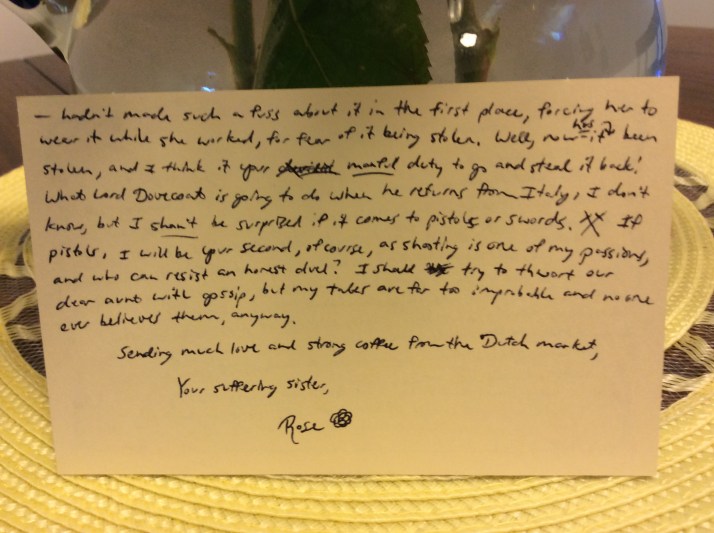 — hadn't made such a fuss about it in the first place, forcing her to
wear it while she worked, for fear of it being stolen. Well, now it has been
stolen, and I think it your manful duty to go and steal it back!
What Lord Dovecoat is going to do when he returns from Italy, I don't
know, but I shan't be surprized if it comes to pistols or swords. XX If
pistols, I will be your second, of course, as shooting is one of my passions,
and who can resist an honest duel? I shall try to thwart our
dear aunt with gossip, but my tales are far too improbable and no one
ever believes them, anyway.
Sending much love and strong coffee from the Dutch market,
Your suffering sister,
Rose